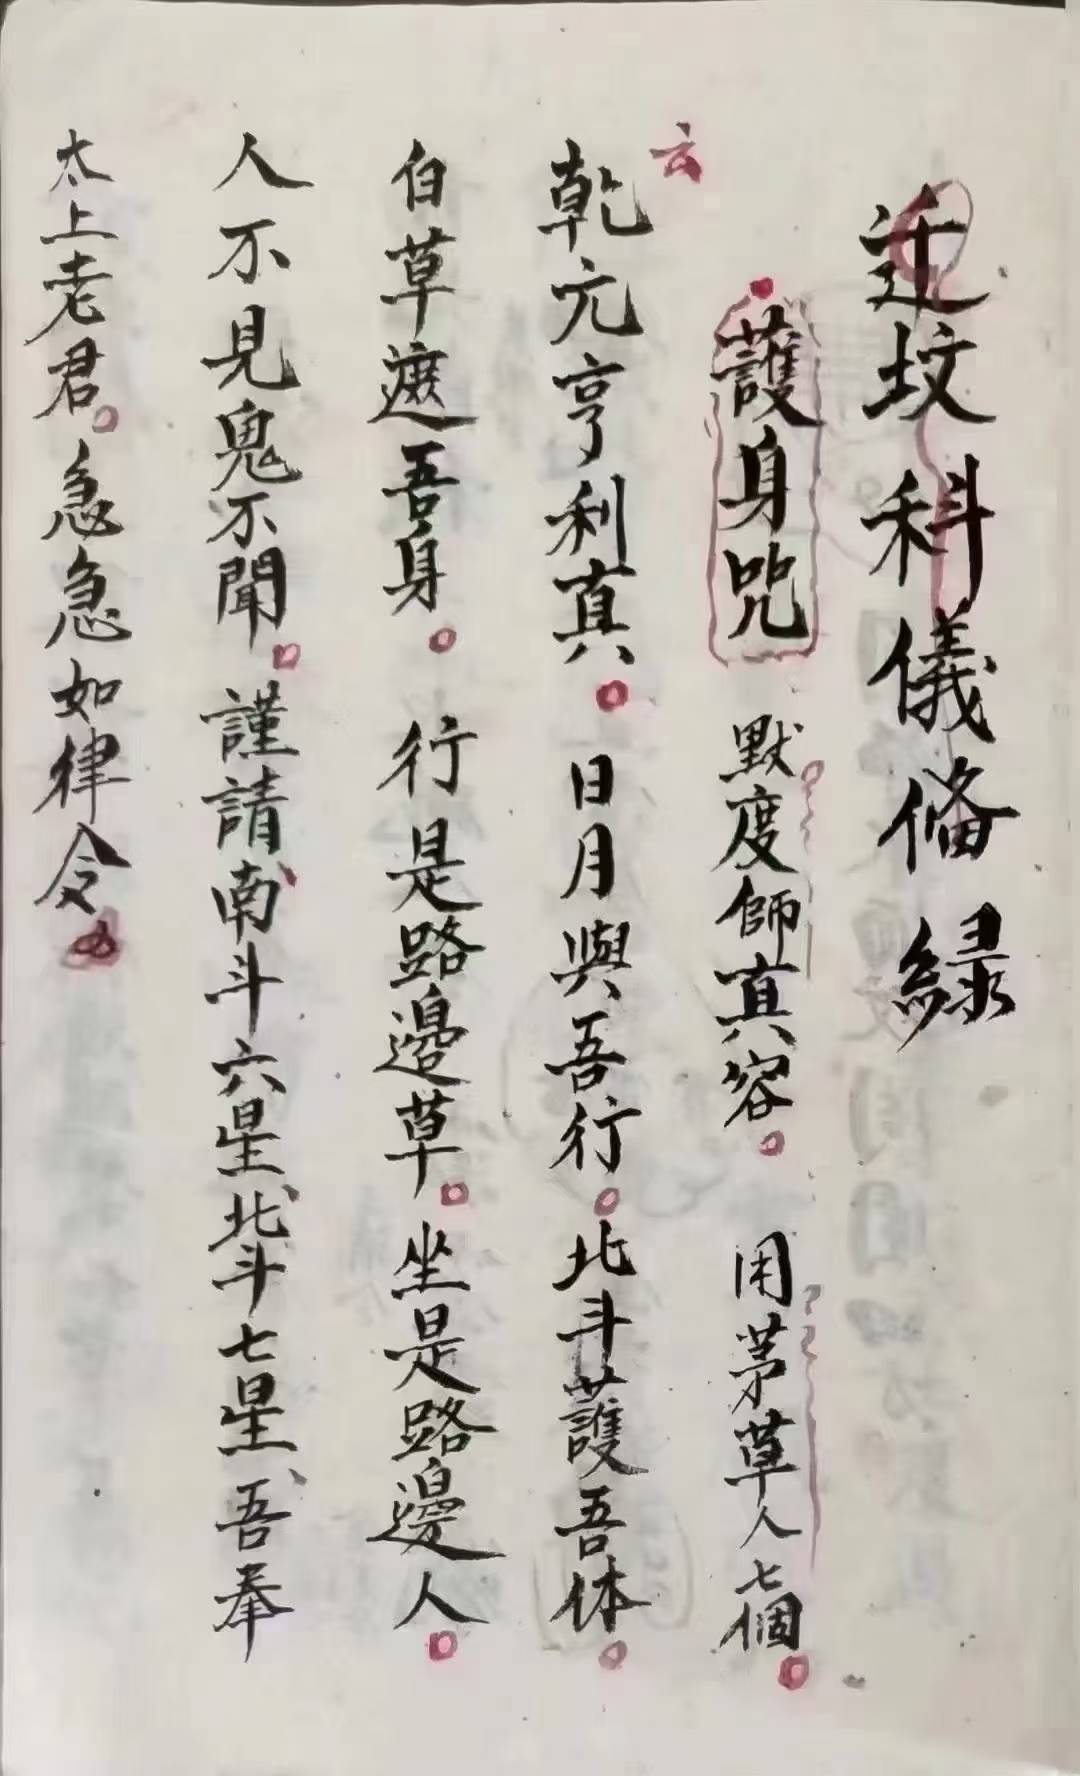 迁坟科儀俻録
護身咒 默度師真容。 用茅草人七個。
云
乾元亨利真。日月與吾行。北斗護吾体。
白草遮吾身。行是路邊草。坐是路邊人。
人不見鬼不聞。謹請南斗六星、北斗七星、吾奉
太上老君。急急如律令。